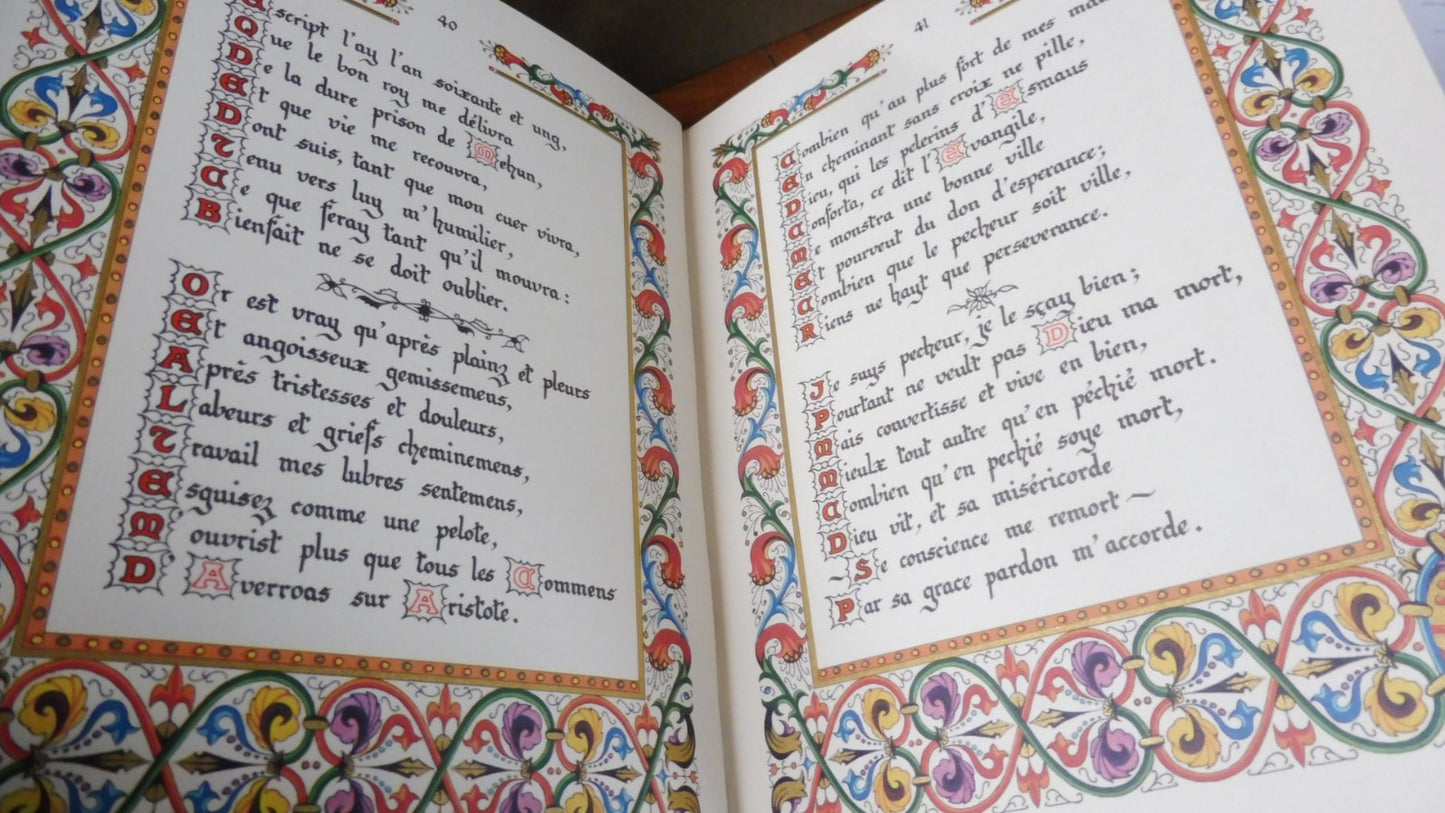 40
Escript l'ay l'an soixante et ung,
Que le bon roy me délivra
De la dure prison de Mehun,
Et que vie me recouvra,
Dont suis, tant que mon cuer vivra,
Tenu vers luy m'humilier,
Ce que feray tant qu'il mouvra :
Bienfait ne se doit oublier.
Or est vray qu'après plainz et pleurs
Et angoisseux gemissemens,
Après tristesses et douleurs,
Labeurs et griefs cheminemens,
Travail mes lubres sentemens,
Esguisez comme une pelote,
M'ouvrist plus que tous les Commens
D'Averroas sur Aristote.
41
Combien qu'au plus fort de mes
En cheminant sans croix ne pille,
Dieu, qui les pelerins d'Esmaus
Conforta, ce dit l'Evangile,
Me monstra une bonne ville
Et pourveut du don d'esperance;
Combien que le pecheur soit ville,
Riens ne hayt que perseverance.
Je suys pecheur, je le sçay bien;
Pourtant ne veult pas Dieu ma mort,
Mais convertisse et vive en bien,
Mieulx tout autre qu'en péchié mort.
Combien qu'en pechié soye mort,
Dieu vit, et sa miséricorde
~Se conscience me remort~
Par sa grace pardon m'accorde.